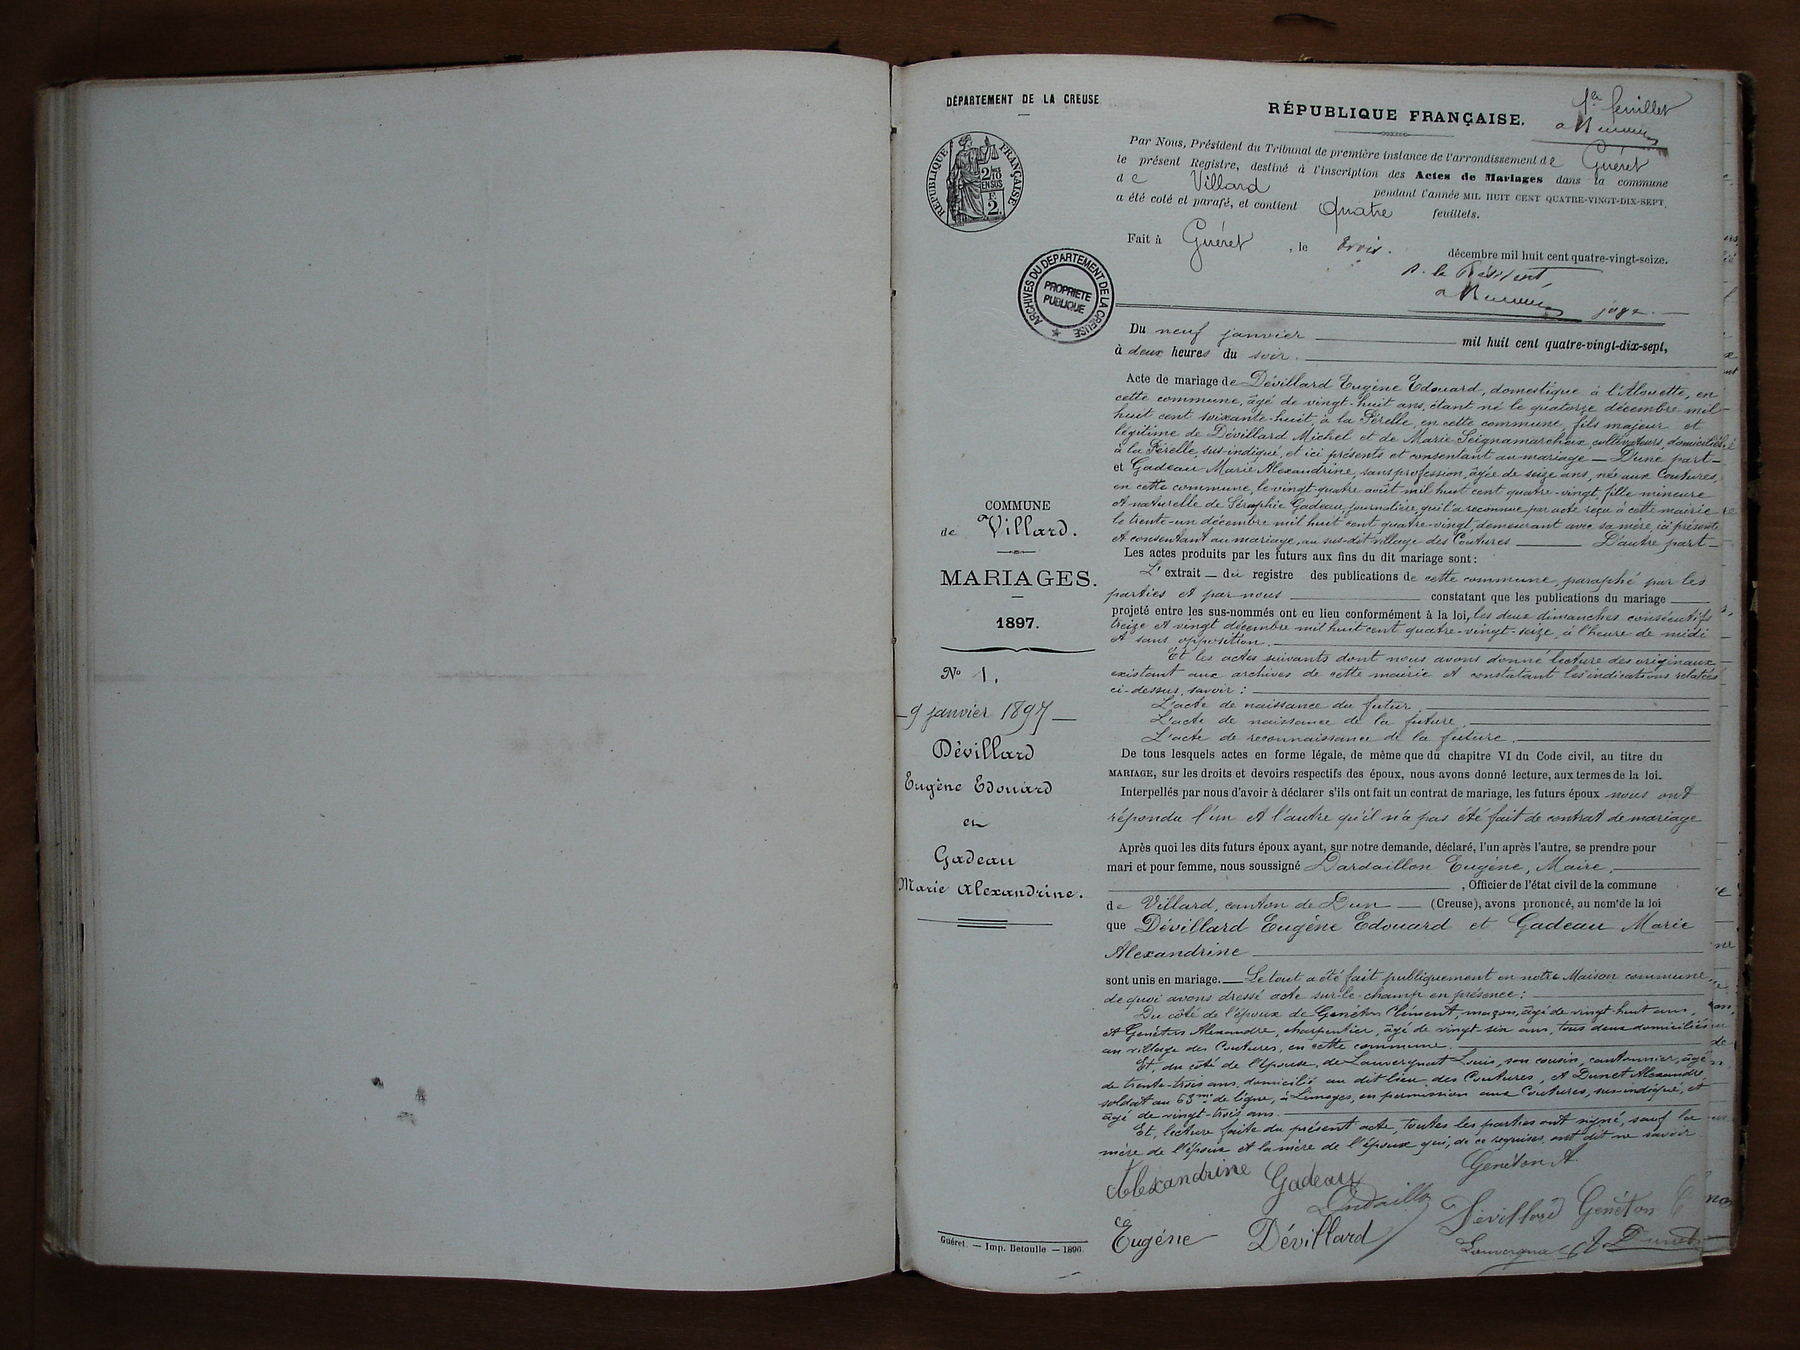 DÉPARTEMENT DE LA CREUSE
RÉPUBLIQUE FRANÇAISE
2/10 EN SUS
2F
ARCHIVES DU DÉPARTEMENT DE LA CREUSE
PROPRIÉTÉ
PUBLIQUE
COMMUNE
de Villard.
MARIAGES.
1897.
N° 1.
9 janvier 1897
Dévillard
Eugène Edouard
et
Gadeau
Marie Alexandrine.
Guéret. — Imp. Betoulle — 1896.
1er feuillet
RÉPUBLIQUE FRANÇAISE.
Par Nous, Président du Tribunal de première instance de l'arrondissement de Guéret
le présent Registre, destiné à l'inscription des Actes de Mariages dans la commune
de Villard pendant l'année MIL HUIT CENT QUATRE-VINGT-DIX-SEPT,
a été coté et parafé, et contient quatre feuillets.
Fait à Guéret, le trois décembre mil huit cent quatre-vingt-seize.
P. le Président
juge
Du neuf janvier mil huit cent quatre-vingt-dix-sept,
à deux heures du soir.
Acte de mariage de Dévillard Eugène Edouard, domestique à l'Alouette, en
cette commune, âgé de vingt-huit ans, étant né le quatorze décembre mil
huit cent soixante-huit, à la Férelle, en cette commune, fils majeur et
légitime de Dévillard Michel et de Marie Seignamarcheix cultivateurs, domiciliés
à la Férelle, sus-indiqué, et ici présents et consentant au mariage — D'une part —
et Gadeau Marie Alexandrine, sans profession, âgée de seize ans, née aux Coutures,
en cette commune, le vingt-quatre août mil huit cent quatre-vingt, fille mineure
et naturelle de Séraphie Gadeau, journalière, qui l'a reconnue par acte reçu à cette mairie
le trente-un décembre mil huit cent quatre-vingt, demeurant avec sa mère, ici présente
et consentant au mariage, au sus-dit village des Coutures — D'autre part —
Les actes produits par les futurs aux fins du dit mariage sont :
L'extrait — du registre des publications de cette commune, paraphé par les
parties et par nous constatant que les publications du mariage
projeté entre les sus-nommés ont eu lieu conformément à la loi, les deux dimanches consécutifs
treize et vingt décembre mil huit cent quatre-vingt-seize, à l'heure de midi
et sans opposition.
Et les actes suivants dont nous avons donné lecture des originaux
existant aux archives de cette mairie et constatant les indications relatées
ci-dessus, savoir :
L'acte de naissance du futur.
L'acte de naissance de la future.
L'acte de reconnaissance de la future.
De tous lesquels actes en forme légale, de même que du chapitre VI du Code civil, au titre du
MARIAGE, sur les droits et devoirs respectifs des époux, nous avons donné lecture, aux termes de la loi.
Interpellés par nous d'avoir à déclarer s'ils ont fait un contrat de mariage, les futurs époux nous ont
répondu l'un et l'autre qu'il n'a pas été fait de contrat de mariage
Après quoi les dits futurs époux ayant, sur notre demande, déclaré, l'un après l'autre, se prendre pour
mari et pour femme, nous soussigné Dardaillon Eugène, Maire,
, Officier de l'état civil de la commune
de Villard, canton de Dun — (Creuse), avons prononcé, au nom de la loi
que Dévillard Eugène Edouard et Gadeau Marie
Alexandrine
sont unis en mariage. — Le tout a été fait publiquement en notre Maison commune,
de quoi avons dressé acte sur-le-champ en présence :
Du côté de l'époux de Genéton Clément, maçon, âgé de vingt-huit ans,
et Genéton Alexandre, charpentier, âgé de vingt-six ans, tous deux domiciliés
au village des Coutures, en cette commune.
Et, du côté de l'épouse, de Lauvergnat Louis, son cousin, cantonnier, âgé
de trente-trois ans, domicilié au dit lieu des Coutures, et Dunet Alexandre,
soldat au 63me de ligne, à Limoges, en permission aux Coutures, sus-indiqué, et
âgé de vingt-trois ans.
Et, lecture faite du présent acte, toutes les parties ont signé, sauf la
mère de l'époux et la mère de l'épouse qui, de ce requises, ont dit ne savoir
Alexandrine Gadeau
Genéton A.
Dardaillon
Dévillard Genéton C
Eugène Dévillard
Lauvergnat A. Dunet